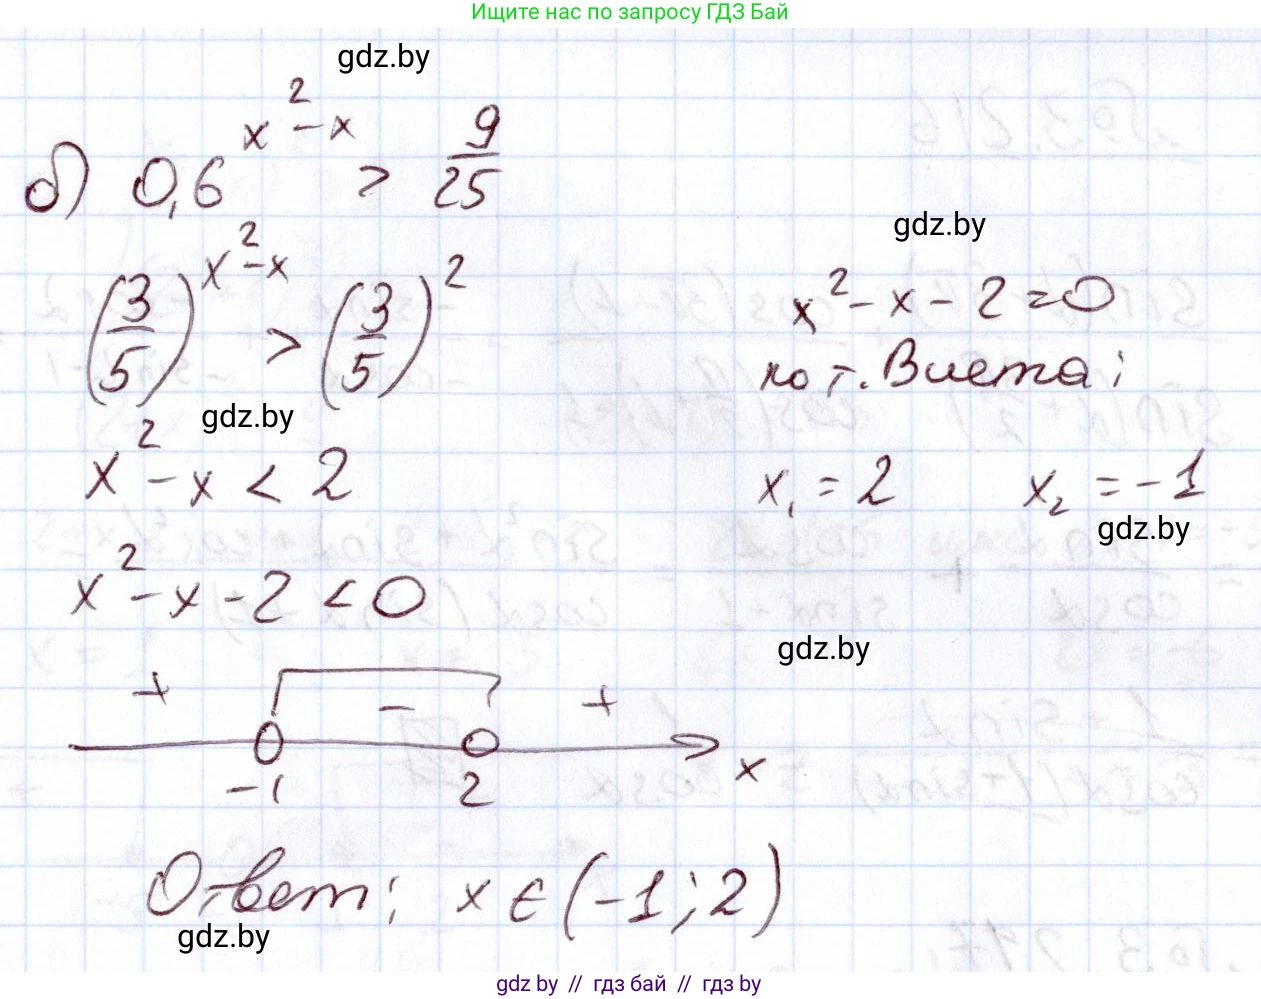 Ищите нас по запросу ГДЗ Бай
gdz.by
б) 0,6^(x²-x) > 9/25
gdz.by
(3/5)^(x²-x) > (3/5)²
x² - x - 2 = 0
по т. Виета:
gdz.by
x² - x < 2
x₁ = 2 x₂ = -1
gdz.by
x² - x - 2 < 0
gdz.by
+ - +
-1 2 x
Ответ: x ∈ (-1; 2)
gdz.by
gdz by // гдз бай // gdz by